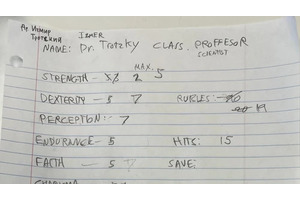 Др Измир
Троцкий
IZMER
NAME: Dr. Trotzky CLASS: PROFFESOR
SCIENTIST
MAX.
STRENGTH - 2 5
DEXTERITY - 5 7 RUBLES:
49
PERCEPTION: 7
ENDURANCE - 5 HITS: 15
FAITH - 5 7 SAVE: